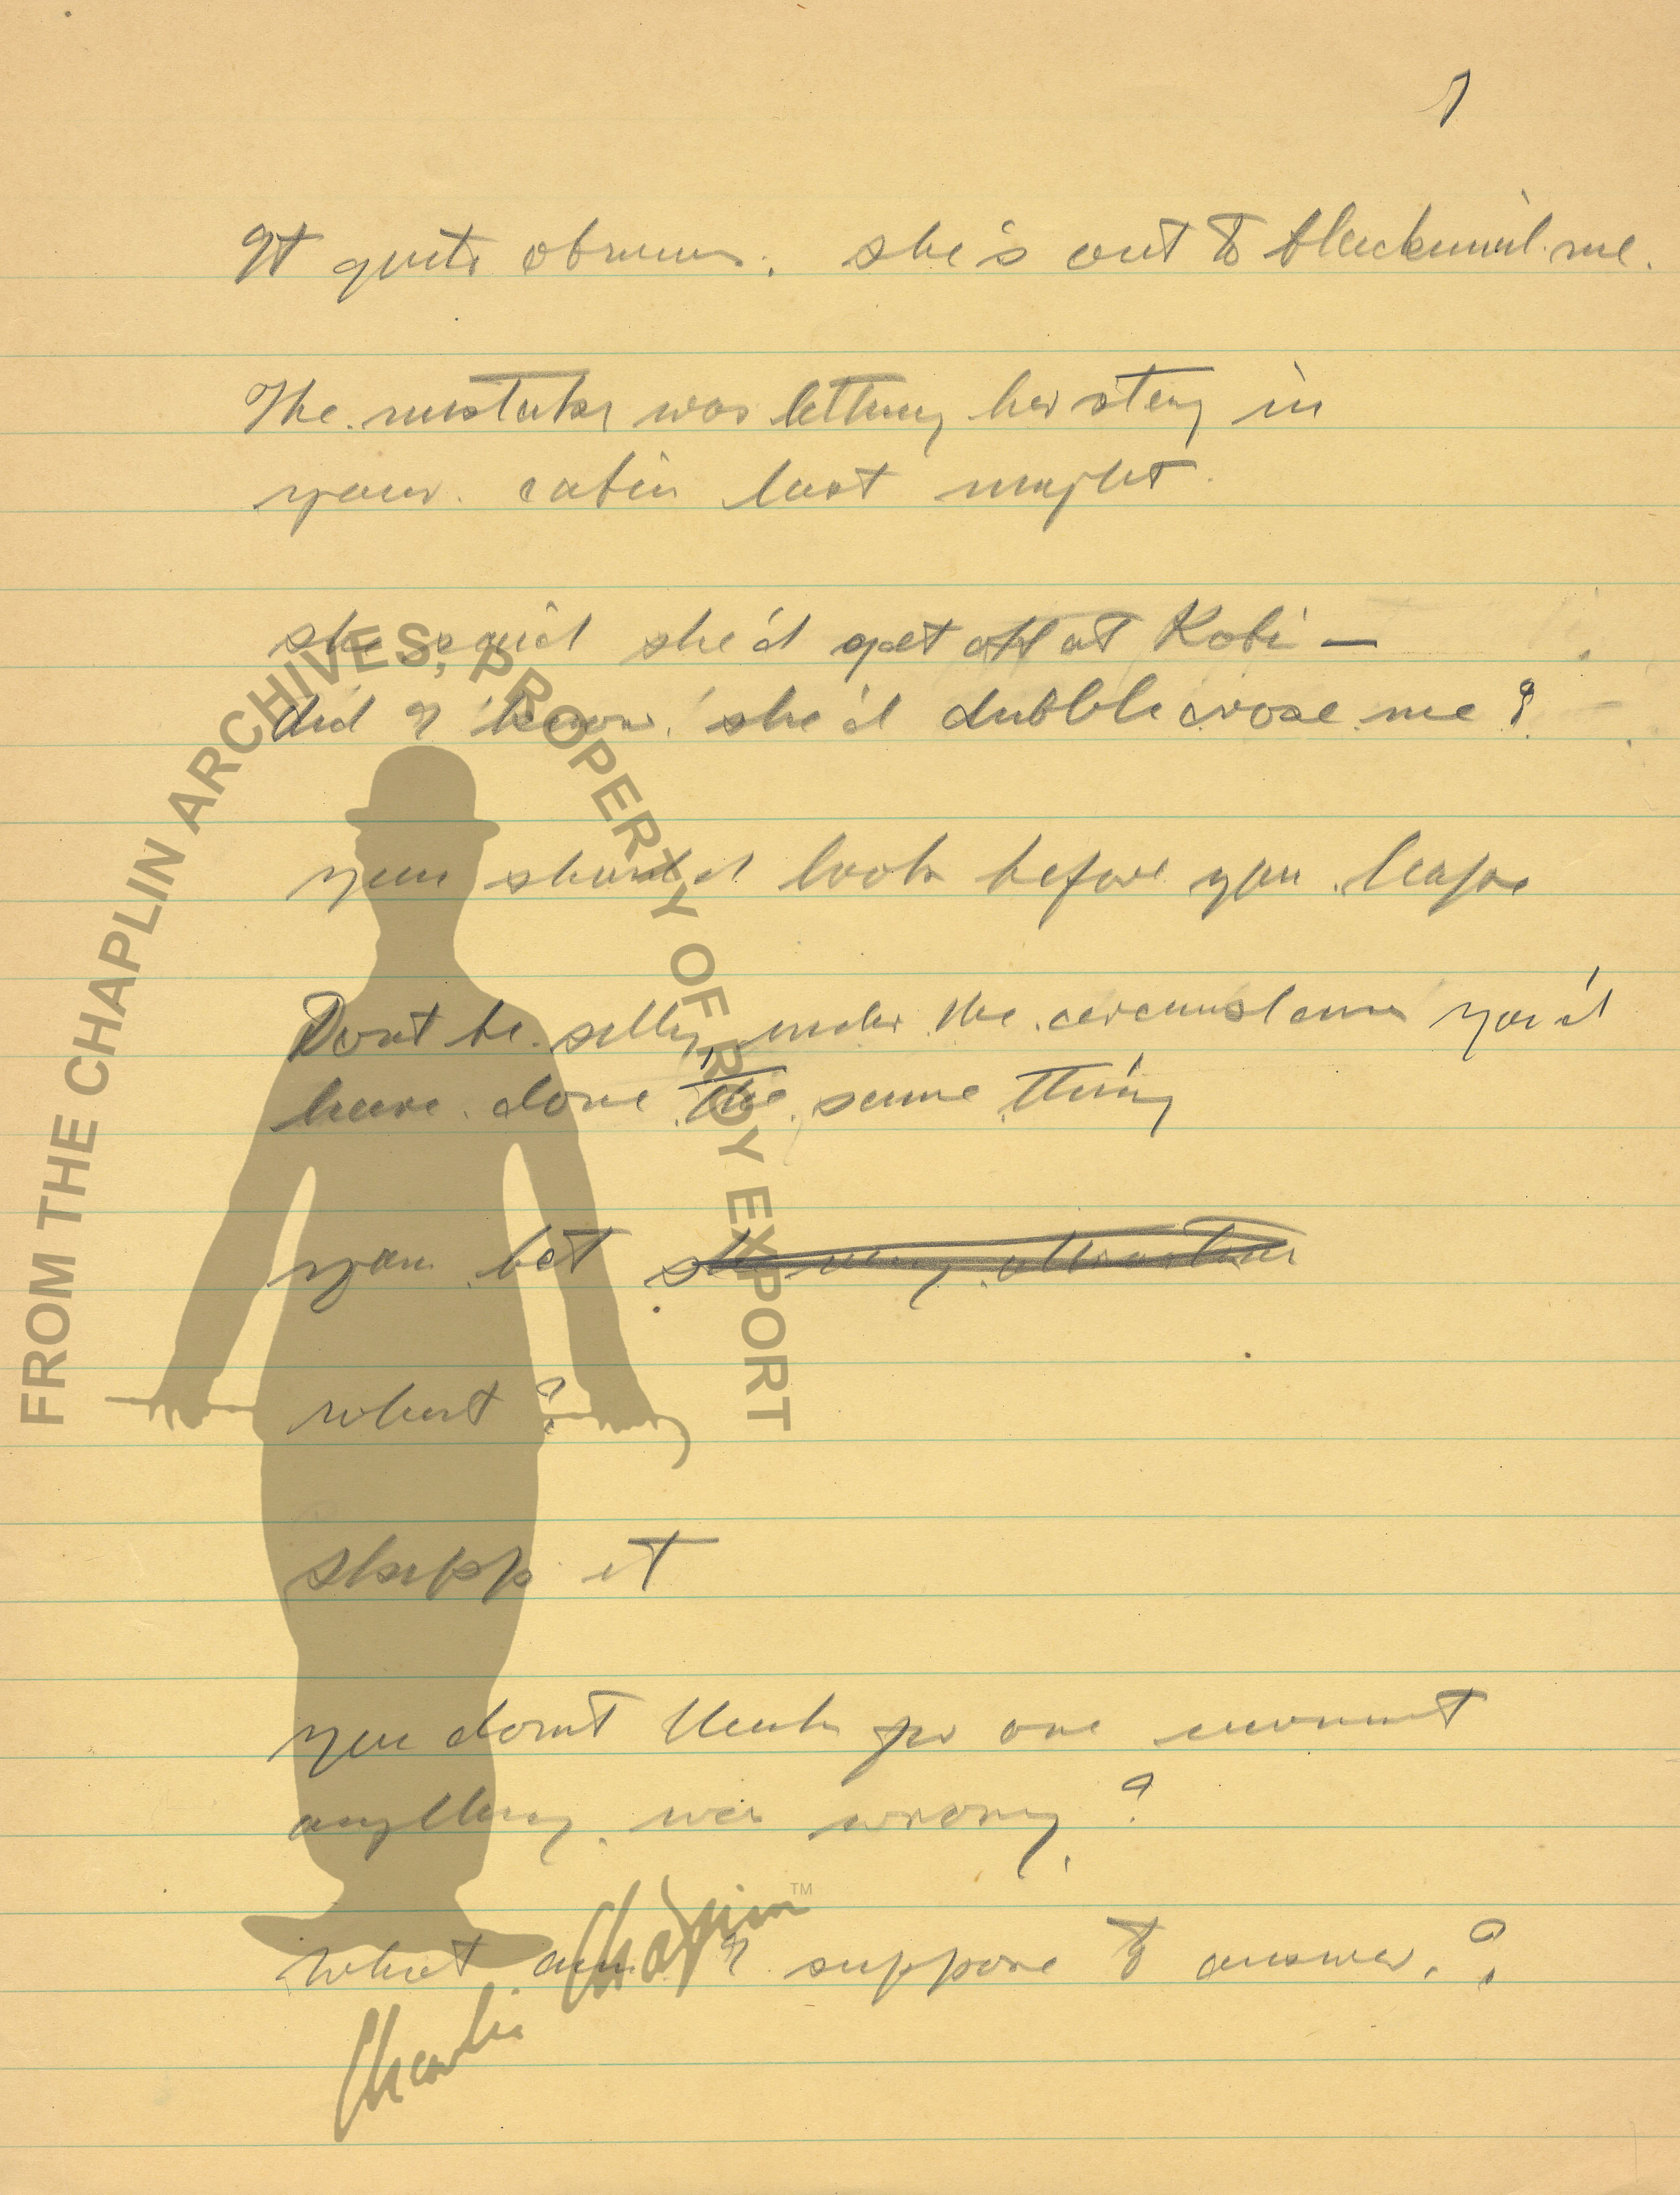 1
It quite obvious. she's out to blackmail me.
The mistake was letting her stay in
your cabin last night.
she said she'd get off at Kobi —
did I know she'd dubble cross me?
you should look before you leape
Dont be silly, under the circumstances you'd
have done the same thing
you bet she very attractive
what?
skipp it
you dont think for one moment
anything was wrong?
what am I suppose to answer.?
FROM THE CHAPLIN ARCHIVES, PROPERTY OF ROY EXPORT
Charlie Chaplin™